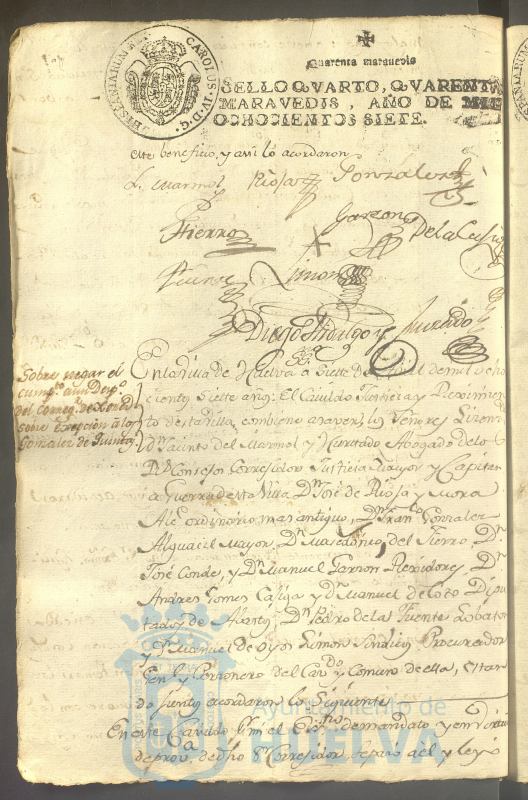 HISPANIARUM REX CAROLUS IV D G
Quarenta maravedis
SELLO QVARTO, QVARENTA
MARAVEDIS, AÑO DE MIL
OCHOCIENTOS SIETE.
este beneficio, y assi lo acordaron
L. Marmol Rioja Gonzalez
Garzon
Hierro De la Cassiga
Fuente Limon
Diego Hidalgo y Hurtado
Sobre negar el
cumpto a un
del Corregr de
sobre exepcion a los
Gonzalez de Quintas
En la Villa de Huelva a siete de de mil ocho
cientos siete años: El Cavildo Justicia y Reximien
to de esta Villa combiene a saver, los Señores Licendo
Dn Jacinto del Marmol y Hurtado Abogado de los
Rs Consejos Correxidor Justicia Mayor y Capitan
a Guerra de esta Villa Dn José de Rioja y Mora
Alce ordinario mas antiguo, Dn Franco Gonzalez
Alguacil Mayor, Dn Macedonio del Hierro, Dn
José Conde, y Dn Manuel Garzon Rexidores, Dn
Andres Gomez Cassiga y Dn Manuel de Coto Dipu
tados de Abasto; Dn Pedro de la Fuente Lobaton
y Manuel de Oyos Limon Sindico Procurador
Genl y Personero del Comun de ella, Estan
do juntos acordaron lo siguiente
En este Cavildo Yo mi el Essno de mandato y en virtud
de prova de dho Sr Corregidor, y leyo
Ayuntamiento de
HUELVA